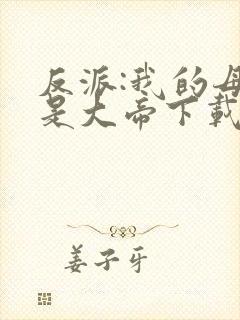 反派:我的母
是大帝下载
姜子牙